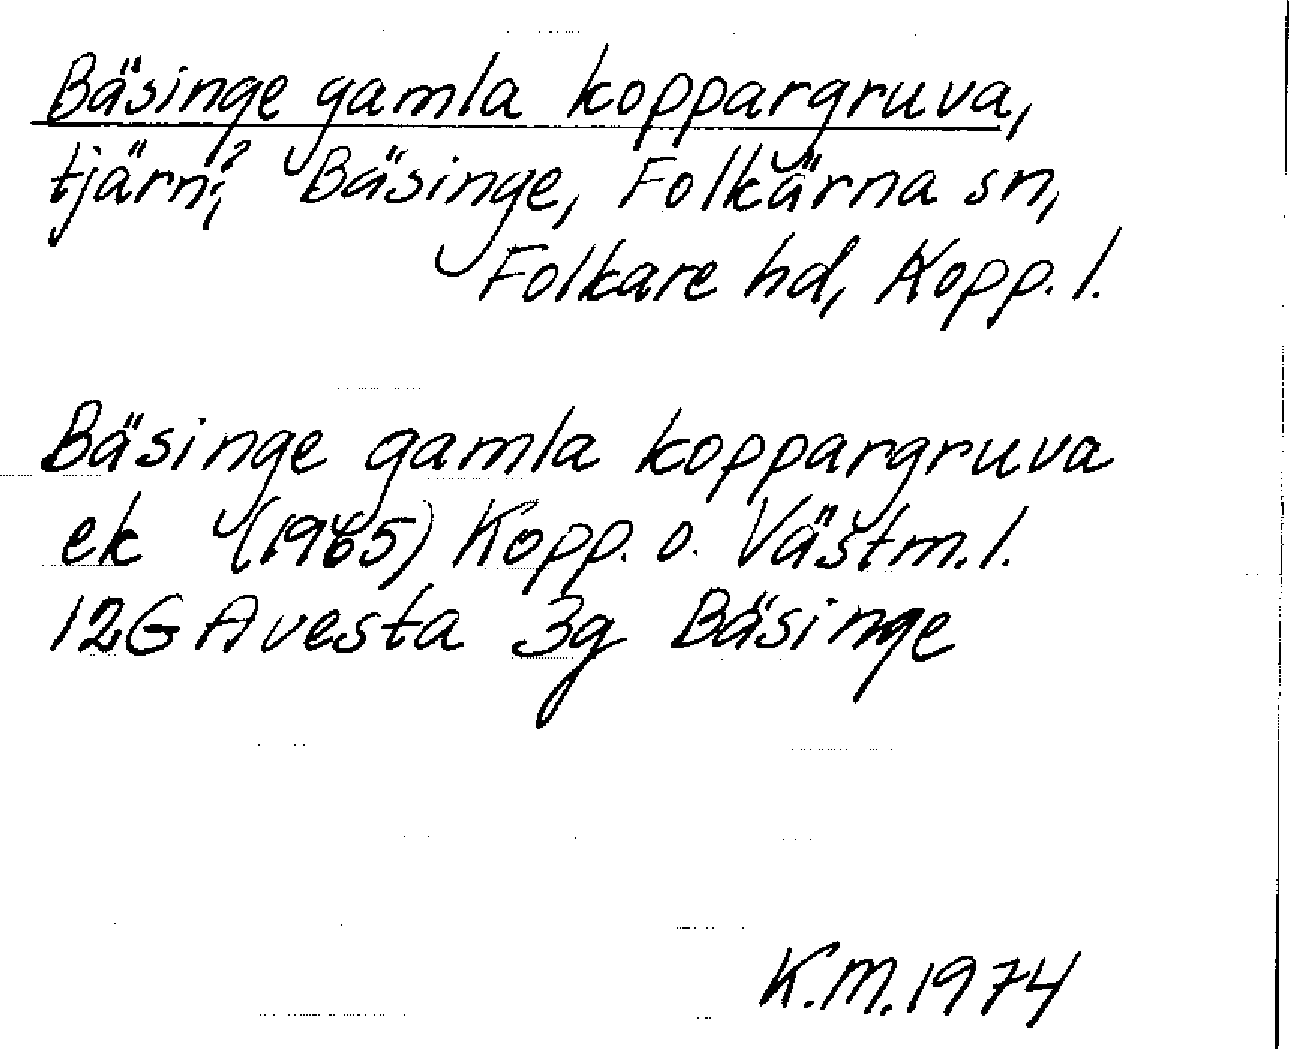 Bäsinge gamla koppargruva,
tjärn?, Bäsinge, Folkärna sn,
Folkare hd, Kopp. l.
Bäsinge gamla koppargruva
ek (1965) Kopp. o. Västm. l.
12G Avesta 3g Bäsinge
K.M. 1974